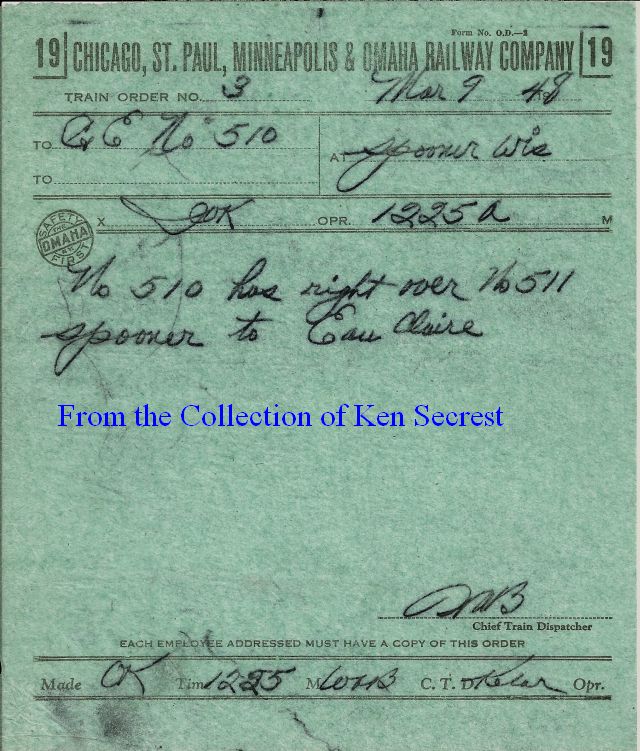 Form No. O.D.—1
19 CHICAGO, ST. PAUL, MINNEAPOLIS & OMAHA RAILWAY COMPANY 19
TRAIN ORDER NO. 3 Mar 9 48
TO C&E No 510 AT Spooner Wis
TO
X OPR. 1225 A M
SAFETY FIRST THE OMAHA RY
No 510 has right over No 511
Spooner to Eau Claire
From the Collection of Ken Secrest
Chief Train Dispatcher
EACH EMPLOYEE ADDRESSED MUST HAVE A COPY OF THIS ORDER
Made OK Time 1225 M C. T. D. Opr.